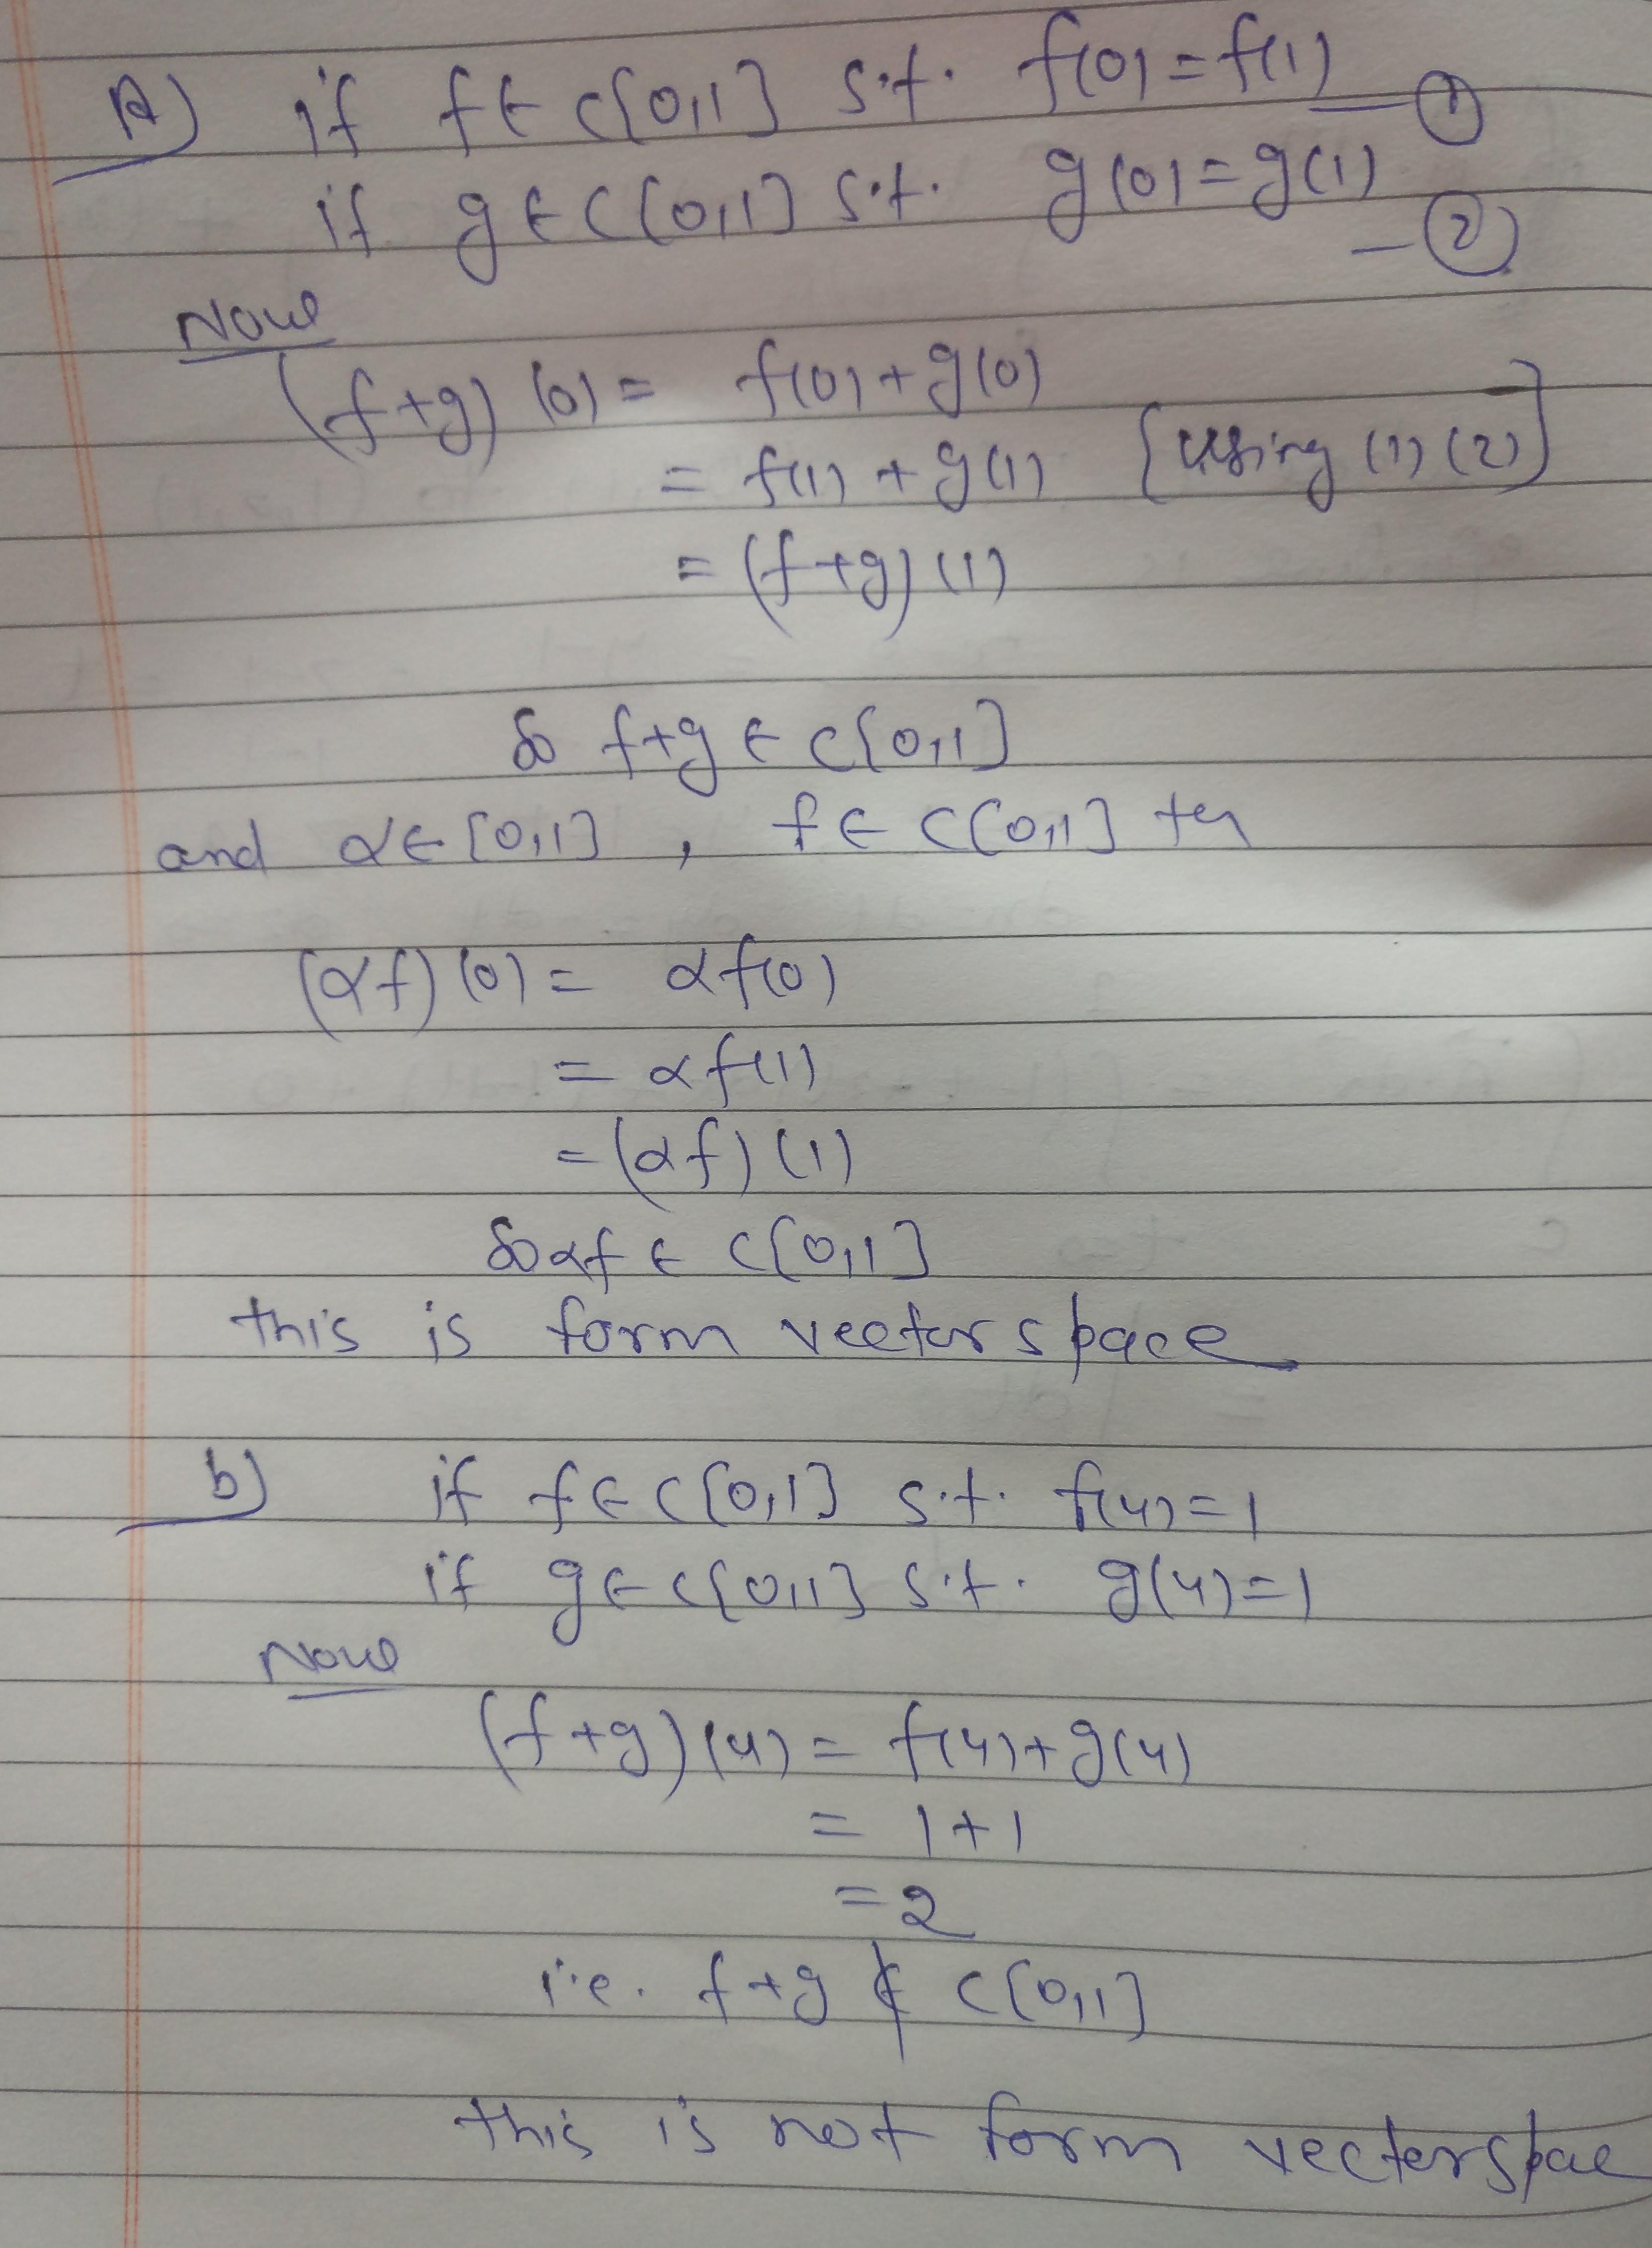 A) if f ∈ C[0,1] s.t. f(0) = f(1) — ①
if g ∈ C[0,1] s.t. g(0) = g(1) — ②
Now
(f+g)(0) = f(0) + g(0)
= f(1) + g(1) [using (1) (2)]
= (f+g)(1)
So f+g ∈ C[0,1]
and α ∈ [0,1] , f ∈ C[0,1]
(αf)(0) = αf(0)
= αf(1)
= (αf)(1)
So αf ∈ C[0,1]
this is form vector space
b) if f ∈ C[0,1] s.t. f(4) = 1
if g ∈ C[0,1] s.t. g(4) = 1
Now
(f+g)(4) = f(4) + g(4)
= 1+1
= 2
i.e. f+g ∉ C[0,1]
this is not form vector spac